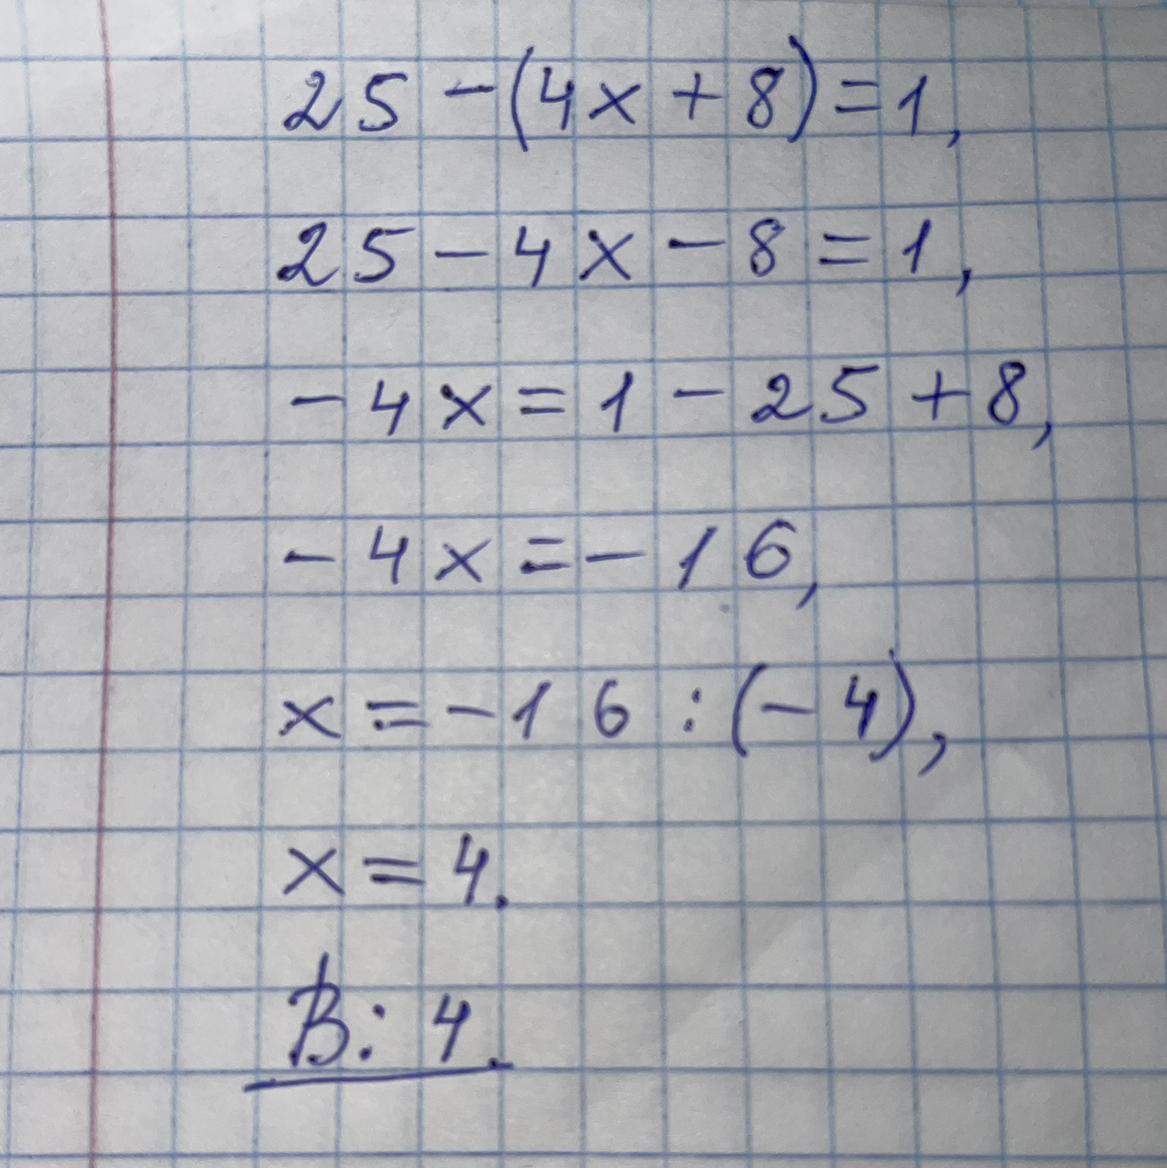 25 - (4x + 8) = 1,
25 - 4x - 8 = 1,
- 4x = 1 - 25 + 8,
- 4x = - 16,
x = - 16 : (- 4),
x = 4.
В: 4.